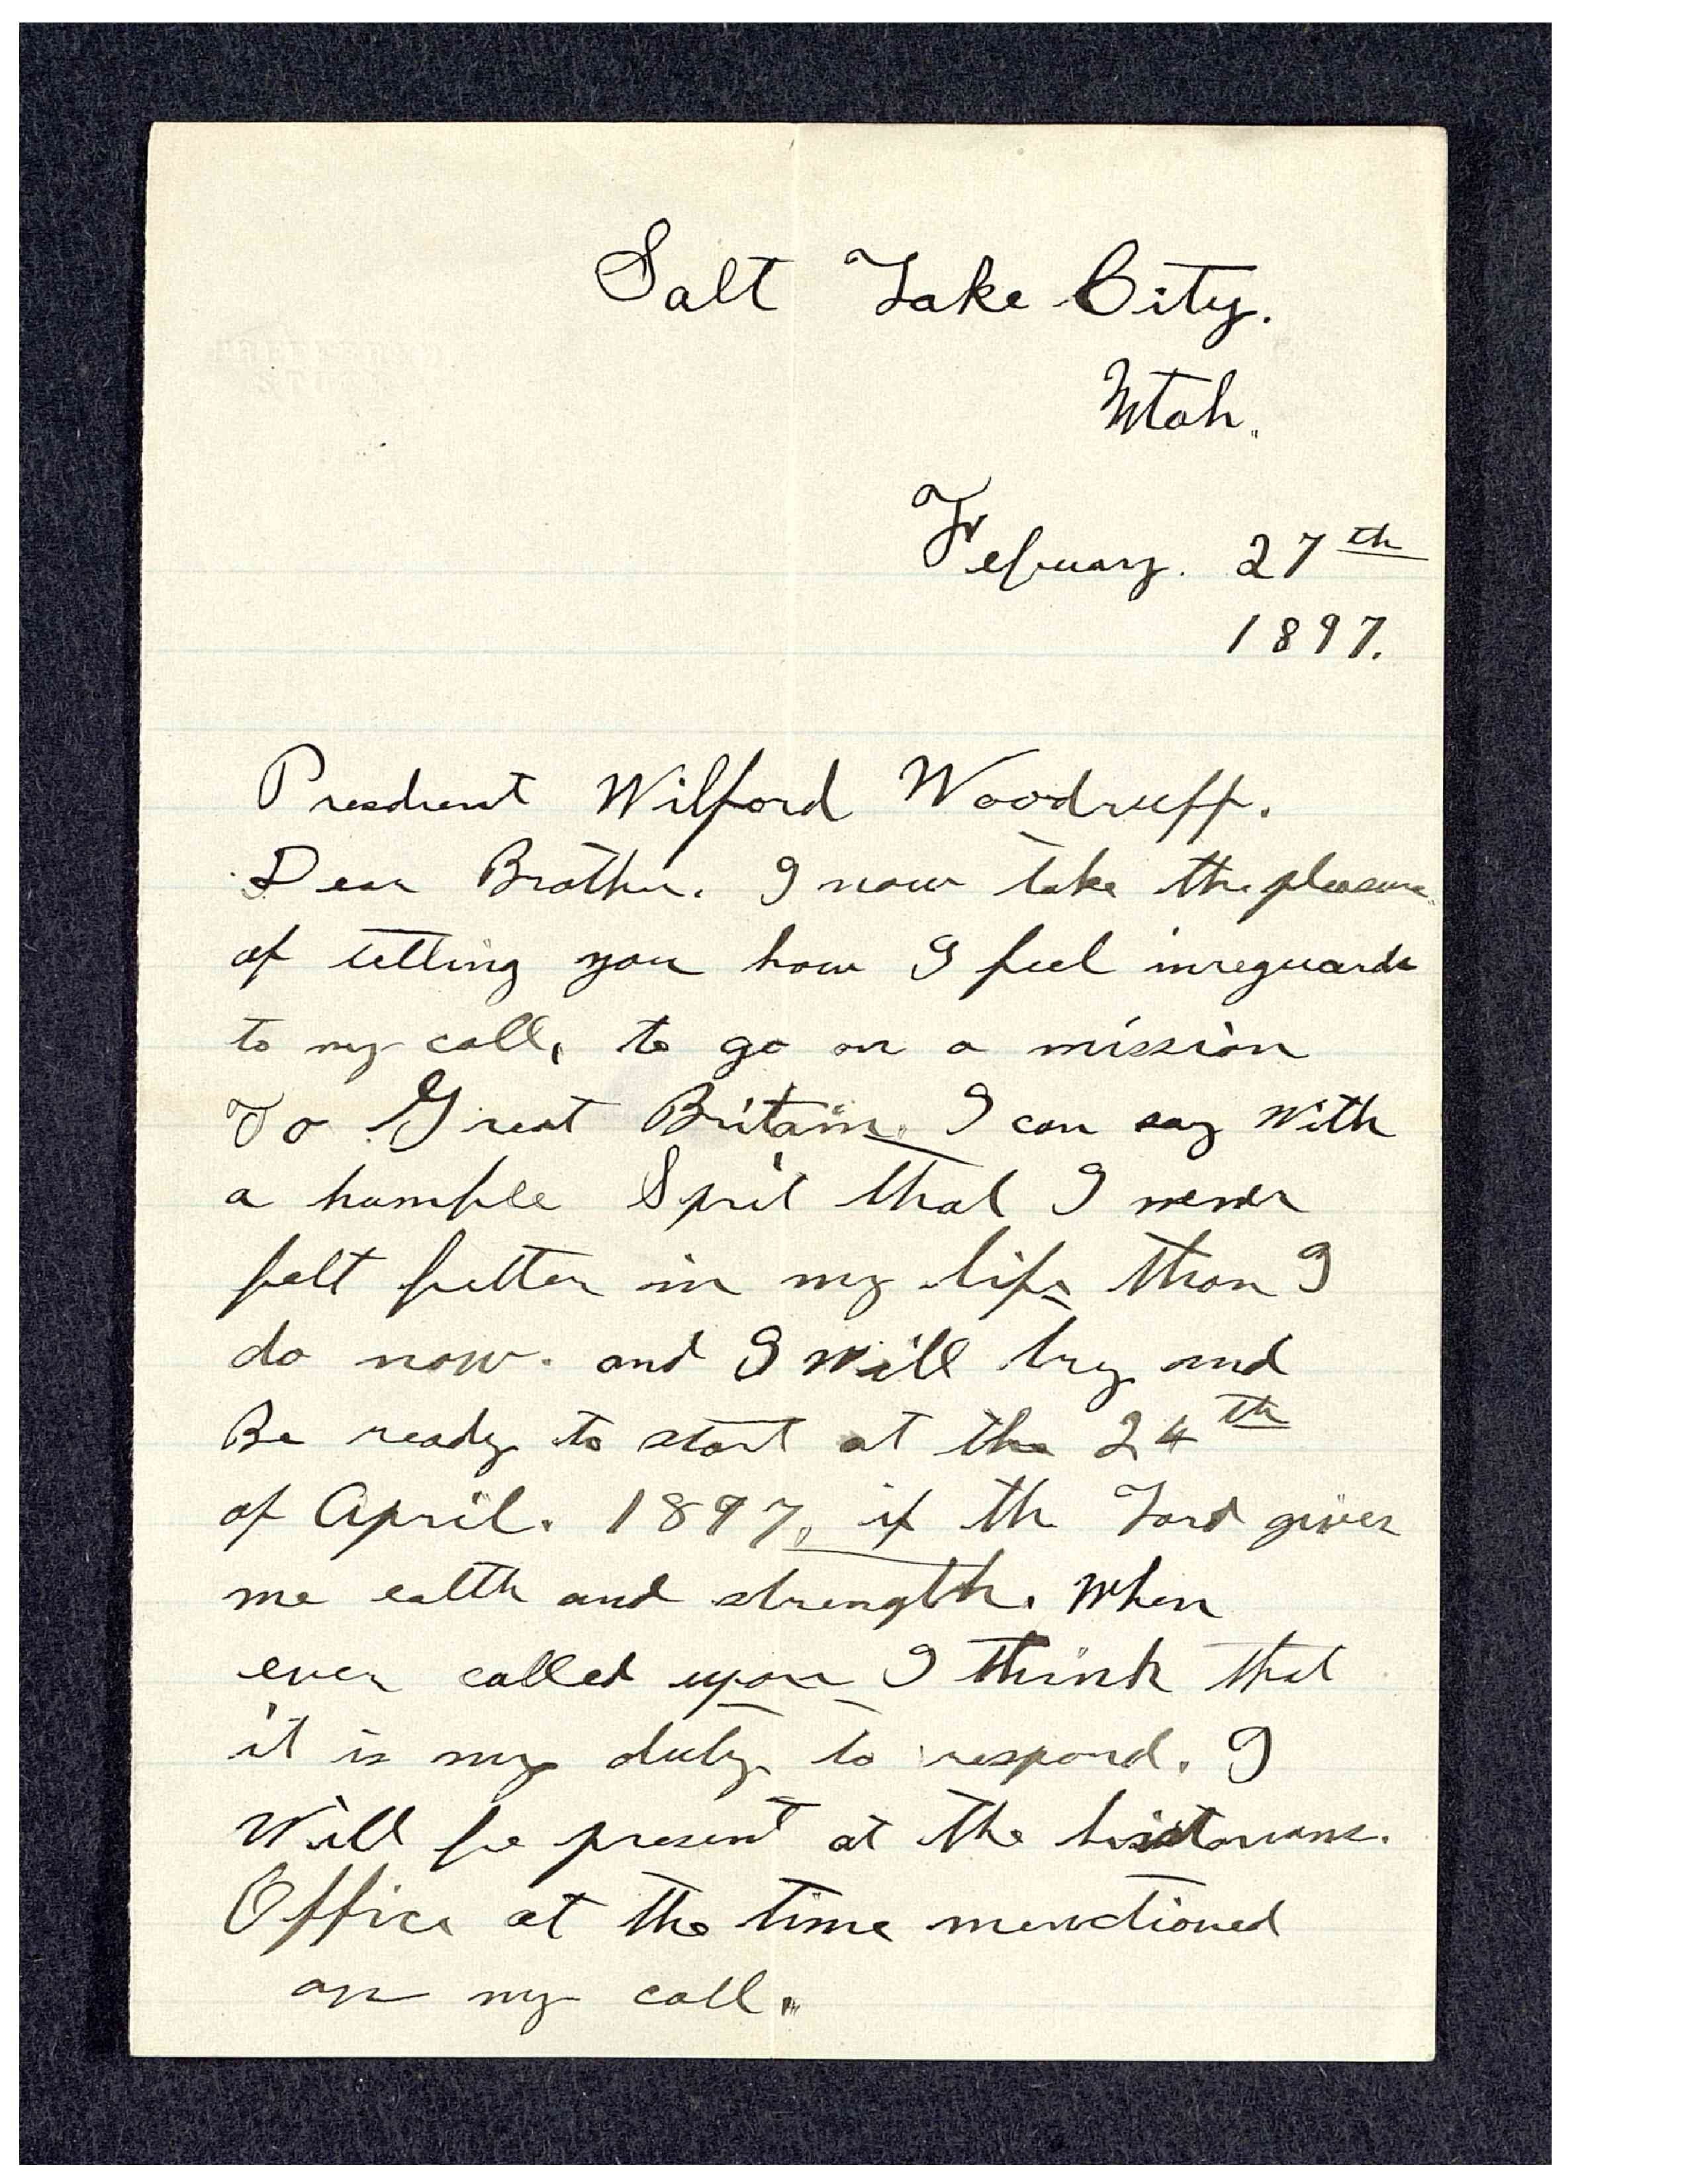 Salt Lake City.
Utah.
February. 27th
1897.
Presdient Wilford Woodruff.
Dear Brother. I now take the pleasure
of telling you how I feel inreguards
to my call, to go on a mission
To Great Britain. I can say With
a humble Sprit that I never
felt better in my life than I
do now. and I Will try and
Be ready to start at the 24th
of April. 1897, if th Lord gives
me ealth and strength. When
ever called upon I think that
it is my duty to respond. I
Will be present at the historians.
Office at the time menctioned
on my call.